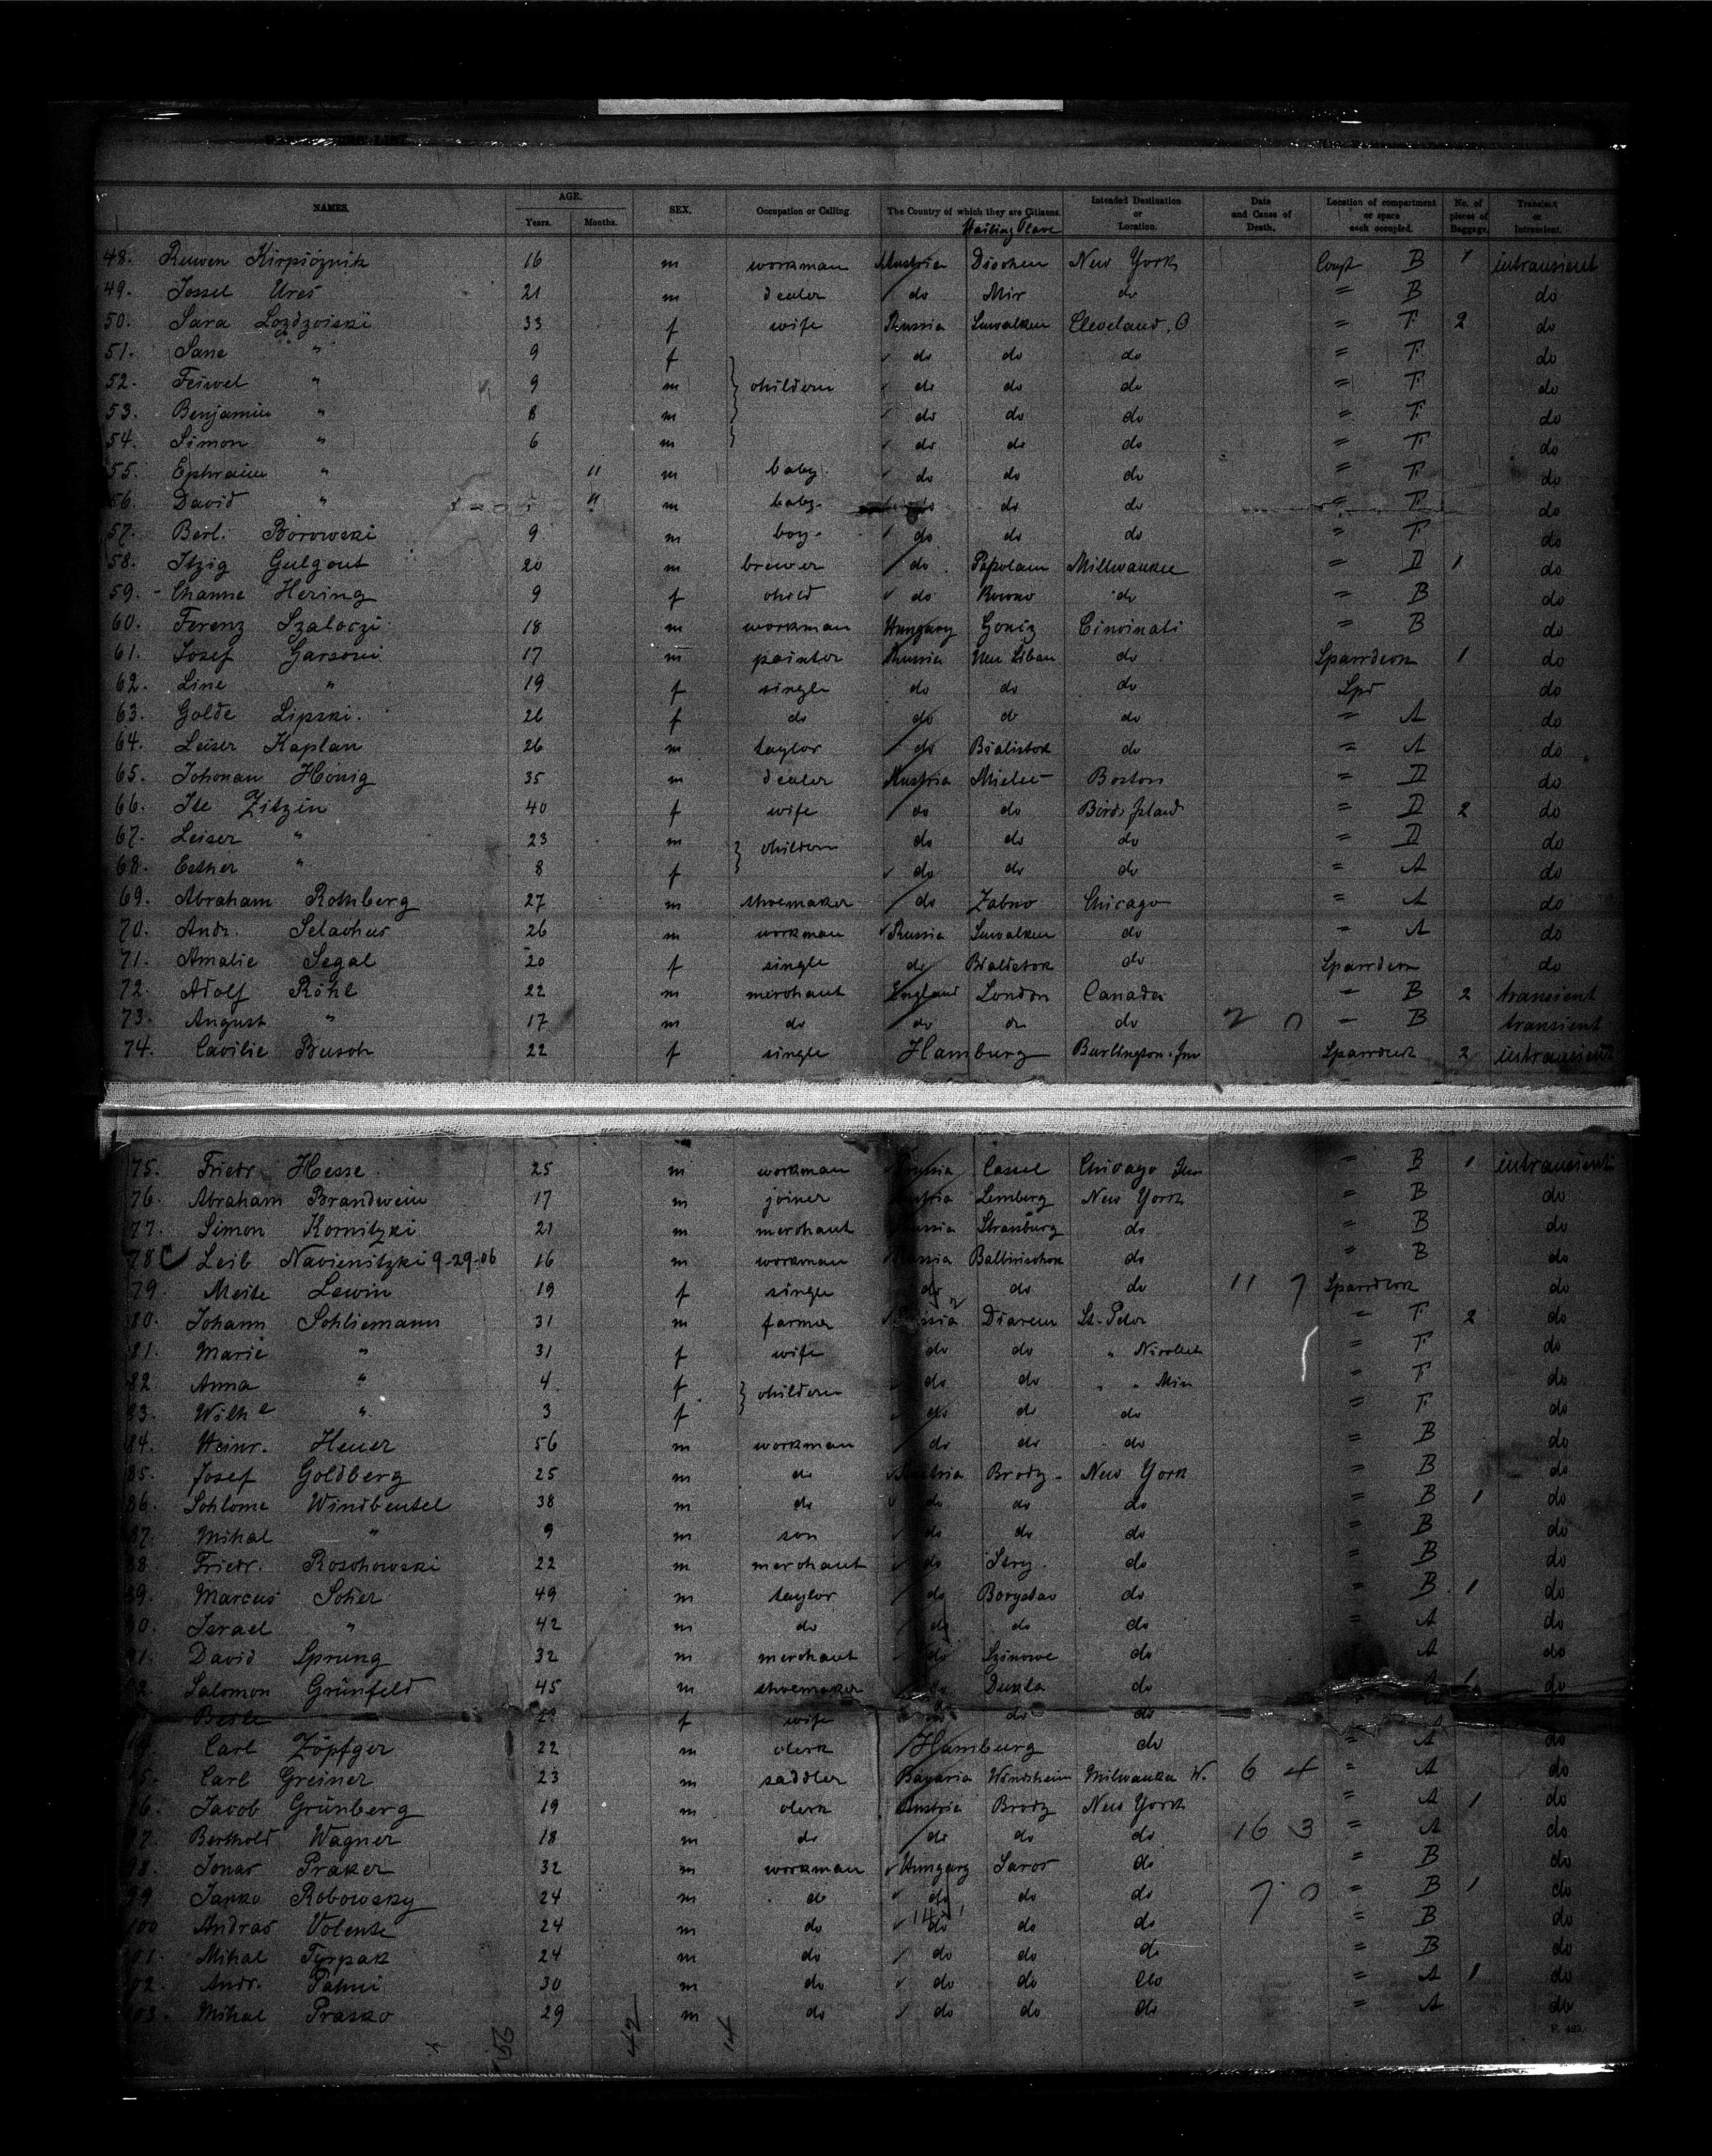 NAMES. AGE. Years. Months. SEX. Occupation or Calling The Country of which they are Citizens. Hailing Place Intended Destination or Location. Date and Cause of Death. Location of compartment or space each occupied. No. of pieces of Baggage. Transient or Intransient.
48. Ruwen Kirpióznik 16 m workman Austria Dischen New York Comp B 1 intransient
49. Jossel Ures 21 m dealer do Mir do " B do
50. Sara Lozdzoiski 33 f wife Russia Suwalken Cleveland, O " F 2 do
51. Sane " 9 f do do do " F do
52. Feiwel " 9 m children do do do " F do
53. Benjamin " 8 m do do do " F do
54. Simon " 6 m do do do " F do
55. Ephraim " 11 m baby do do do " F do
56. David " m baby do do do " F do
57. Berl. Borowski 9 m boy do do do " F do
58. Itzig Gulgout 20 m brewer do Papolam Millwaukee " D 1 do
59. Channe Hering 9 f child do Kowno do " B do
60. Ferenz Szaloczi 18 m workman Hungary Goniz Cincinati " B do
61. Josef Garsoni 17 m painter Russia Neu Liban do Sparrdeck 1 do
62. Line " 19 f single do do do Spd do
63. Golde Lipski. 26 f do do do do " A do
64. Leiser Kaplan 26 m taylor do Bialistok do " A do
65. Johonan Hönig 35 m dealer Austria Mielec Boston " D do
66. Ite Zitzin 40 f wife do do " D 2 do
67. Leiser " 23 m children do do do " D do
68. Esther " 8 f do do do " A do
69. Abraham Rothberg 27 m shoemaker do Zabno Chicago " A do
70. Andr. Selachus 26 m workman Russia Suwalken do " A do
71. Amalie Segal 20 f single do Bialistok do Sparrdeck do
72. Adolf Röhl 22 m merchant England London Canada " B 2 transient
73. August " 17 m do do do do 2 0 " B transient
74. Cacilie Busch 22 f single Hamburg Burlington Sparrdeck 2 intransient
75. Friedr Hesse 25 m workman Cassel Chicago " B 1 intransient
76. Abraham Brandwein 17 m joiner Austria Lemberg New York " B do
77. Simon Kornitzki 21 m merchant Strasburg do " B do
78 C Leib Navienitzki 9-29-06 16 m workman Russia Balbirischok do " B do
79. Meite Lewin 19 f single do do do 11 7 Sparrdeck do
80. Johann Schliemann 31 m farmer St. Peter " F 2 do
81. Marie " 31 f wife do do " Nicollet " F do
82. Anna " 4 f children do do " " Min " F do
83. Wilhe " 3 f do do do " F do
84. Heinr. Heuer 56 m workman do do do " B do
85. Josef Goldberg 25 m do Austria Brody New York " B do
86. Schlome Windbeutel 38 m do do do do " B 1 do
87. Mihal " 9 m son do do do " B do
88. Friedr. Roschowski 22 m merchant do Stry. do " B do
89. Marcus Scher 49 m taylor do Boryslav do " B 1 do
90. Israel " 42 m do do do do " A do
91. David Sprung 32 m merchant do Szinowe do A do
92. Salomon Grünfeld 45 m shoemaker do Dukla do A 1 do
Beile f wife do do A
Carl Zöpfger 22 m clerk Hamburg do " A do
95. Carl Greiner 23 m saddler Bavaria Windsheim Milwauke W. 6 4 " A do
96. Jacob Grünberg 19 m clerk Austria Brody New York " A 1 do
97. Berthold Wagner 18 m do do do do 16 3 " A do
98. Jonas Praker 32 m workman Hungary Saros do " B do
99 Janko Robowsky 24 m do do do do 7 0 " B 1 do
100 Andras Volensk 24 m do do do do " B do
101. Mihal Tyrpak 24 m do do do do " B do
102. Andr. Pahni 30 m do do do do " A 1 do
103. Mihal Prasko 29 m do do do do " A do